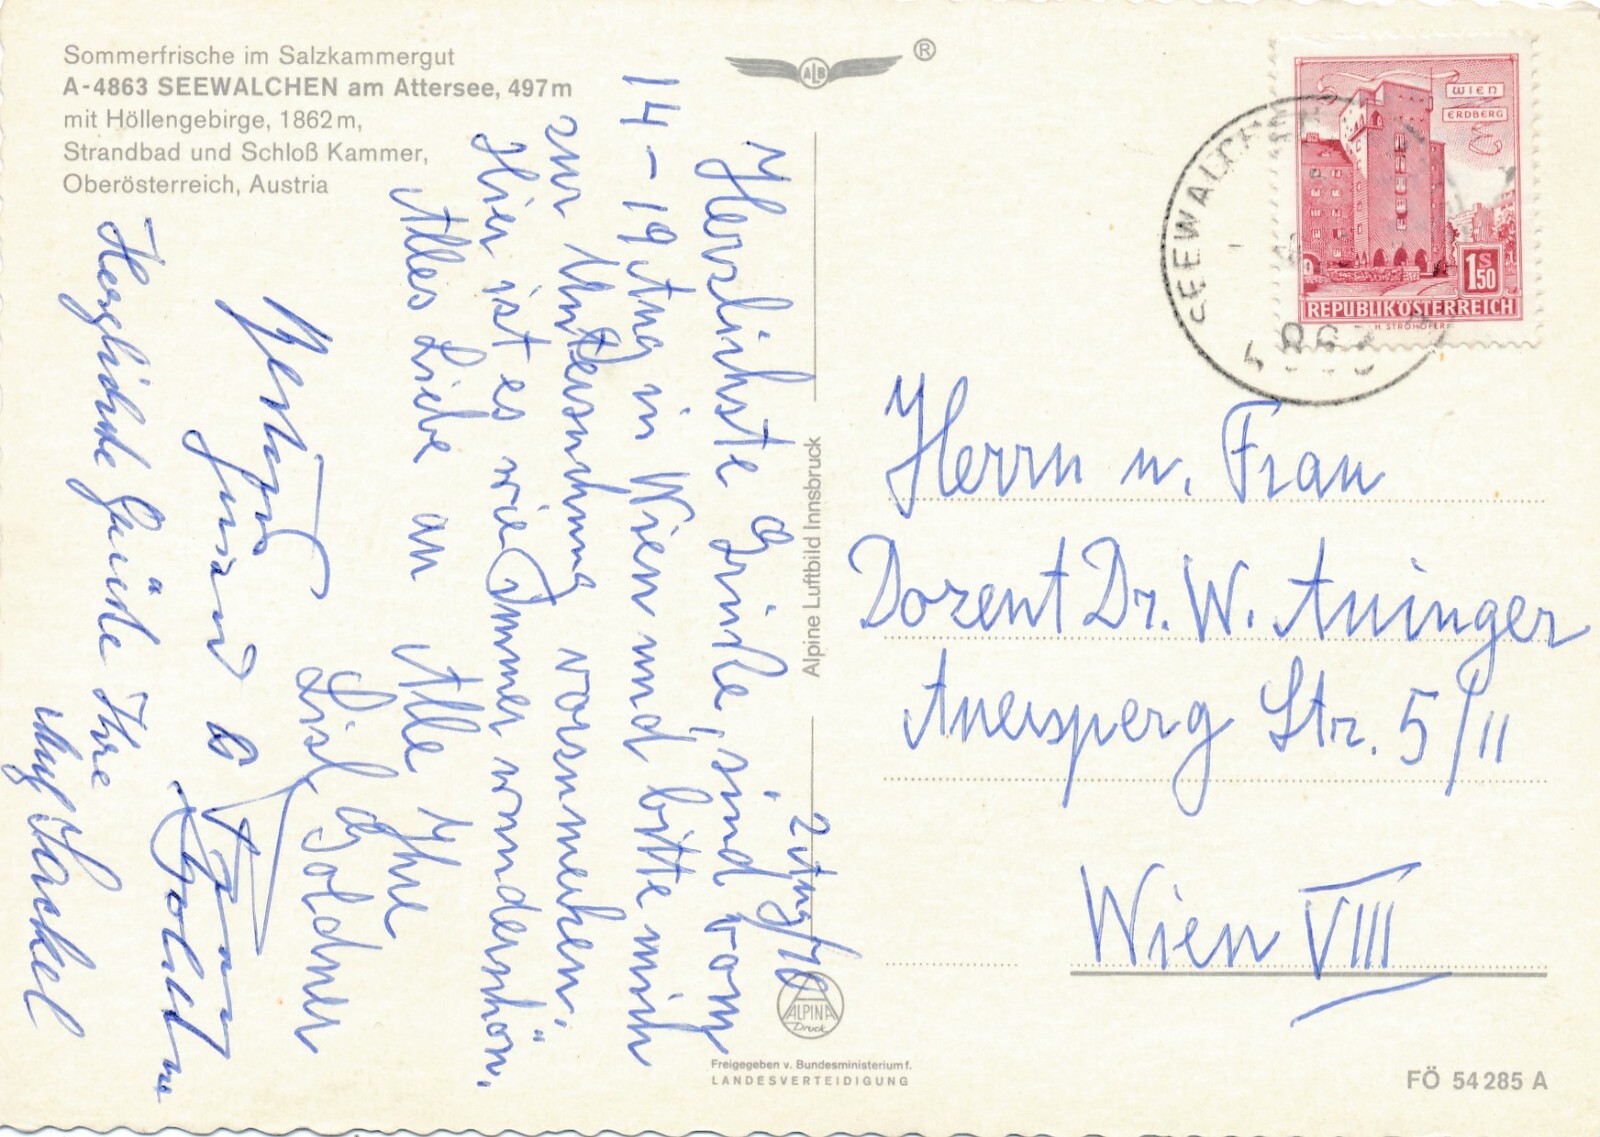 Sommerfrische im Salzkammergut
A-4863 SEEWALCHEN am Attersee, 497 m
mit Höllengebirge, 1862 m,
Strandbad und Schloß Kammer,
Oberösterreich, Austria
ALB
®
WIEN
ERDBERG
1 S 50
REPUBLIK ÖSTERREICH
H. STROHOFER
SEEWALCH
2 Aug/70
Herzlichste Grüße, sind vom
14-19 Aug in Wien und bitte mich
zur Untersuchung vorzumerken.
Hier ist es wie Immer wunderschön.
Alles Liebe an Alle Ihre
Lisl Goldner
Herzliche Grüße Ihre
Alpine Luftbild Innsbruck
Herrn u. Frau
Dozent Dr. W. Auinger
Auersperg Str. 5/II
Wien VIII
ALPINA
Druck
Freigegeben v. Bundesministerium f.
LANDESVERTEIDIGUNG
FÖ 54 285 A